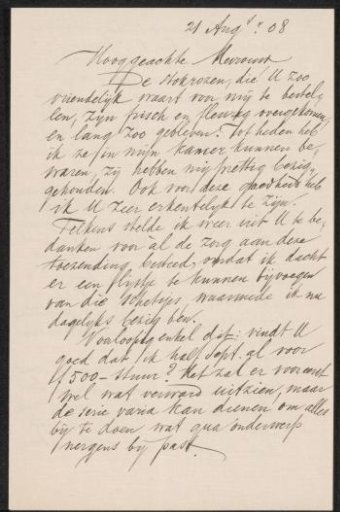 21 Aug. '08
Hooggeachte Mevrouw
De stokrozen, die U zoo
vriendelijk waart voor mij te bestel-
len, zijn frisch en fleurig overgekomen
en lang zoo gebleven. Tot heden heb
ik ze in mijn kamer kunnen be-
waren, zij hebben mij prettig bezig-
gehouden. Ook voor deze goedheid heb
ik U zeer erkentelijk te zijn.
Telkens stelde ik weer uit U te be-
danken voor al de zorg aan deze
toezending besteed, omdat ik dacht
er een lijstje te kunnen bijvoegen
van die schetsjes, waarmede ik nu
dagelijks bezig ben.
Voorloopig enkel dit: vindt U
goed dat ik half Sept. al voor
f 500- stuur? Het zal er voor U
wel wat verward uitzien, maar
de serie varia kan dienen om alles
bij te doen wat qua onderwerp
nergens bij past.